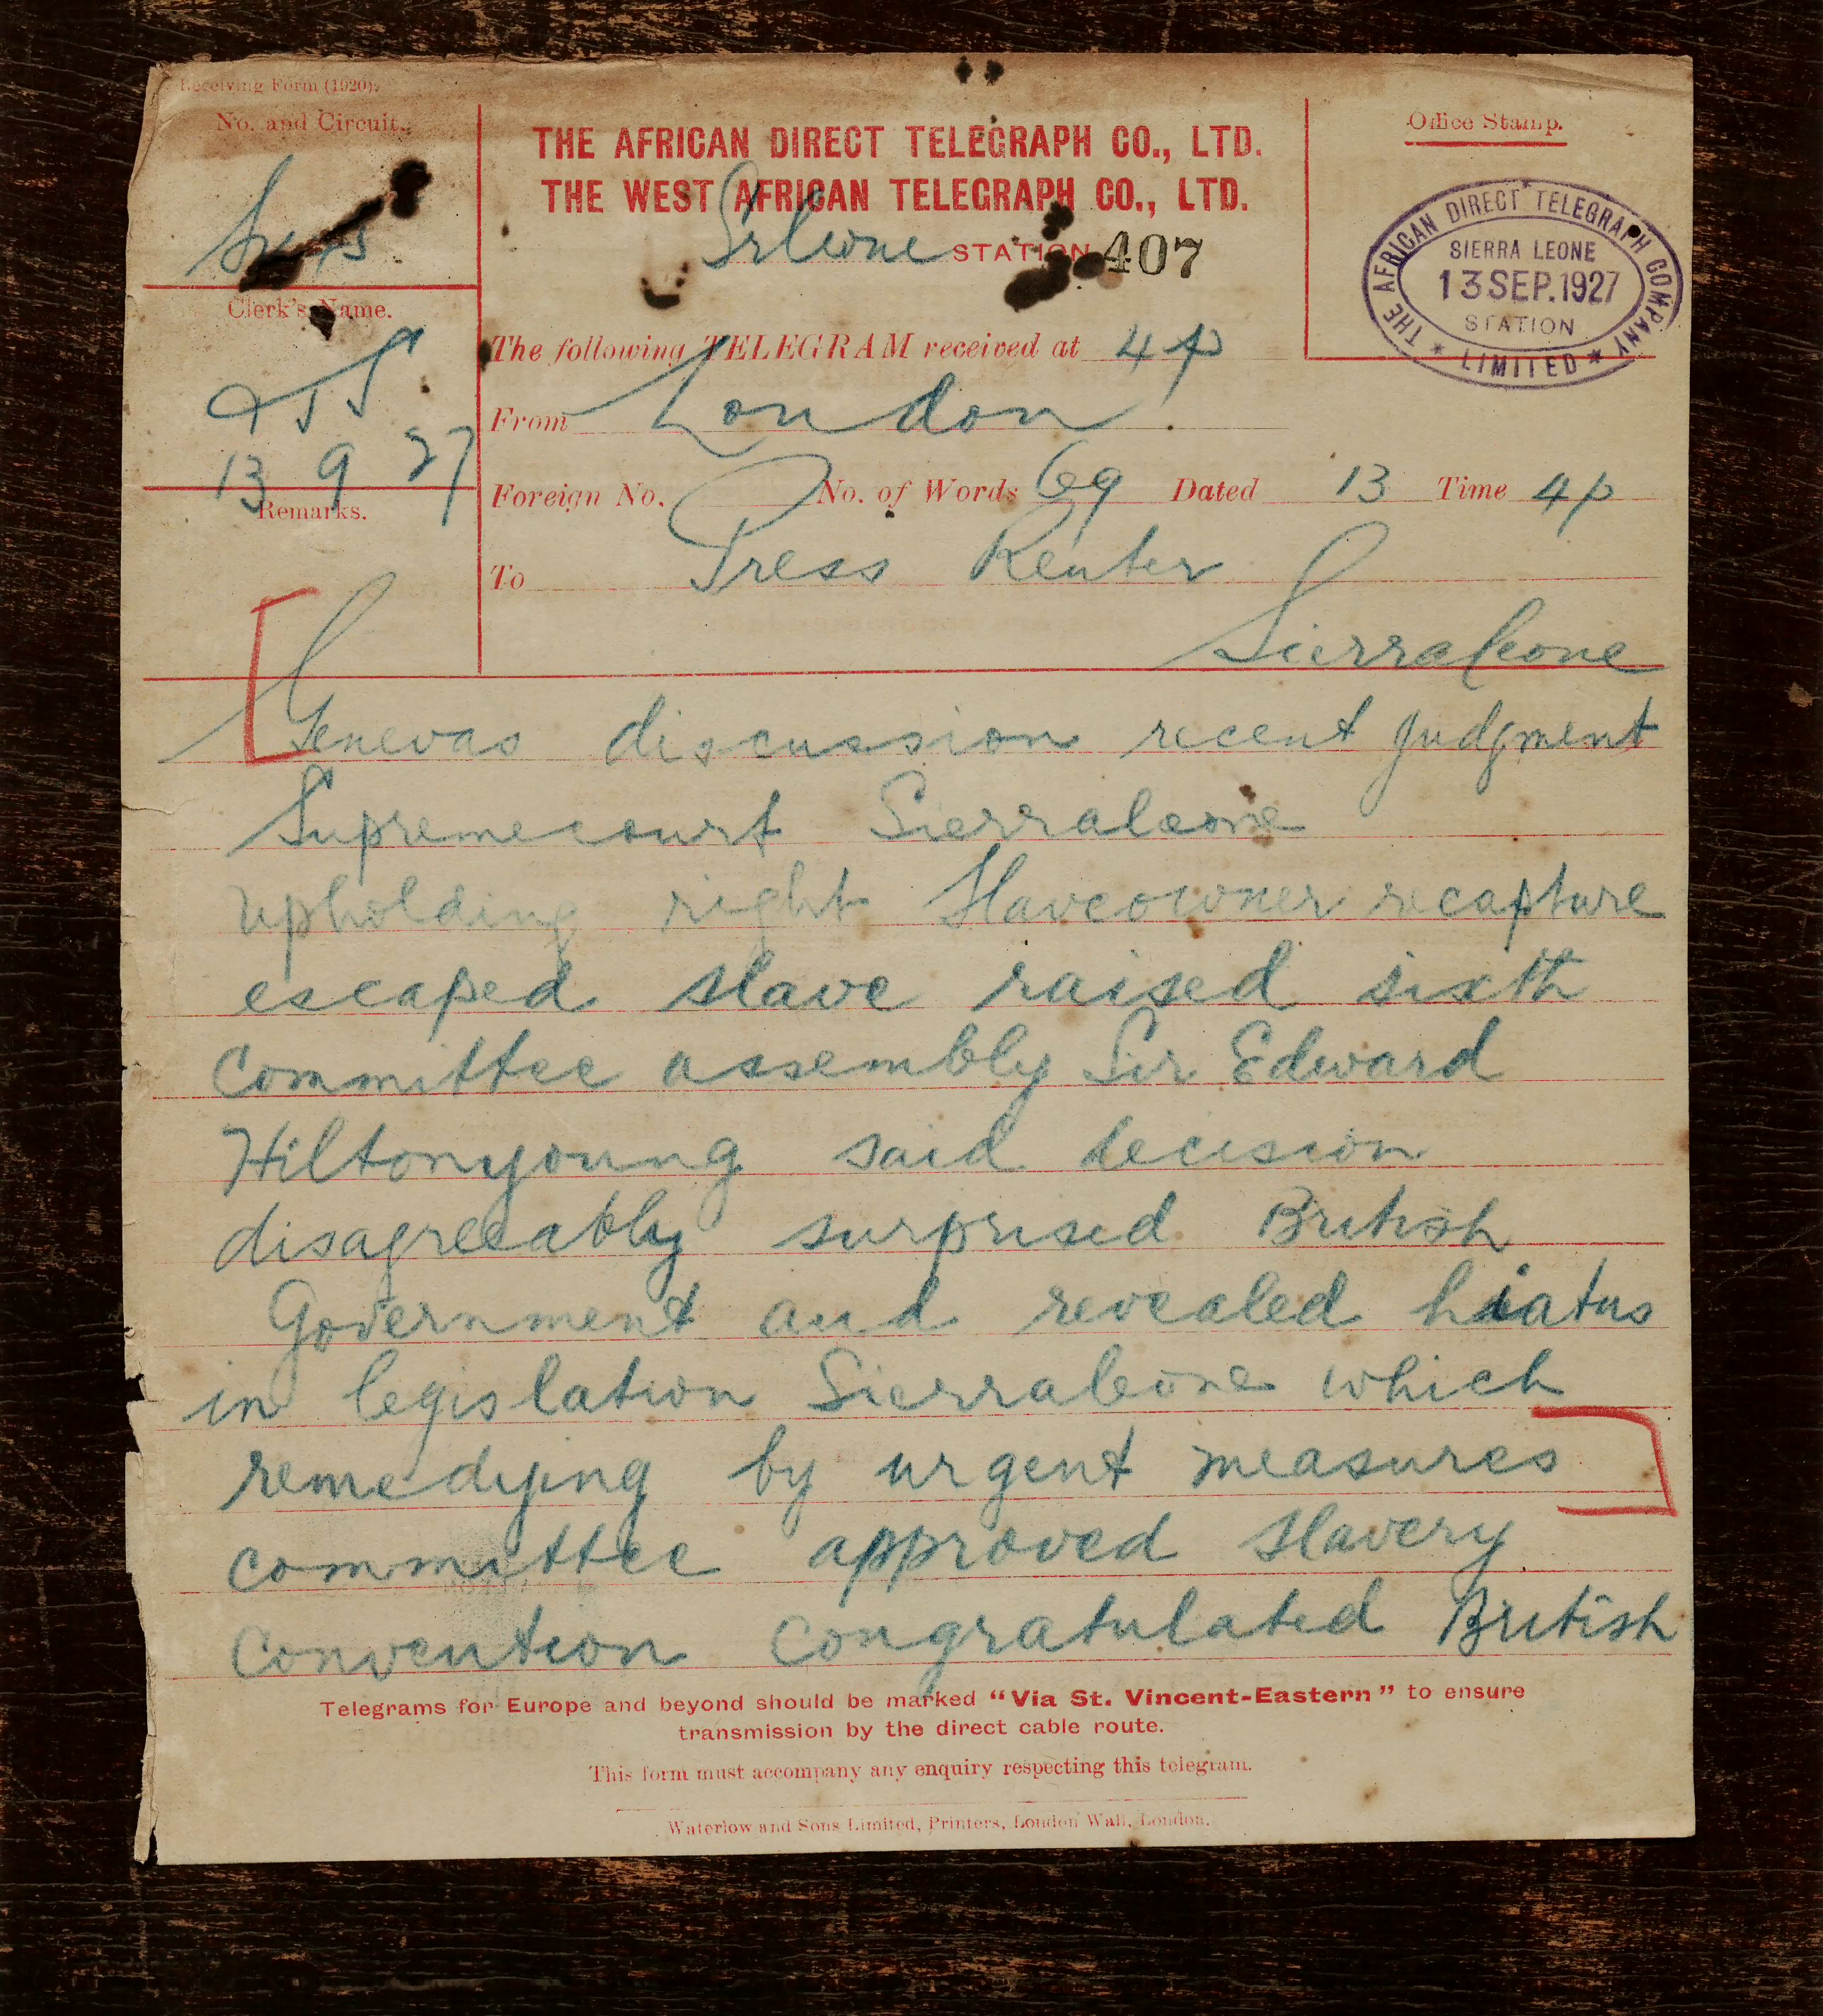 Receiving Form (1920).
No. and Circuit.
THE AFRICAN DIRECT TELEGRAPH CO., LTD.
THE WEST AFRICAN TELEGRAPH CO., LTD.
Srleone STATION 407
Office Stamp.
THE AFRICAN DIRECT TELEGRAPH COMPANY
SIERRA LEONE
13 SEP. 1927
STATION
* LIMITED *
Clerk's Name.
13 9 27
Remarks.
The following TELEGRAM received at 4 p
From London
Foreign No. No. of Words 69 Dated 13 Time 4 p
To Press Reuter
Sierraleone
Genevas discussion recent judgment
Supremecourt Sierraleone
upholding right Slaveowner recapture
escaped slave raised sixth
committee assembly Sir Edward
Hiltonyoung said decision
disagreeably surprised British
Government and revealed hiatus
in legislation Sierraleone which
remedying by urgent measures
committee approved slavery
convention congratulated British
Telegrams for Europe and beyond should be marked "Via St. Vincent-Eastern" to ensure
transmission by the direct cable route.
This form must accompany any enquiry respecting this telegram.
Waterlow and Sons Limited, Printers, London Wall, London.